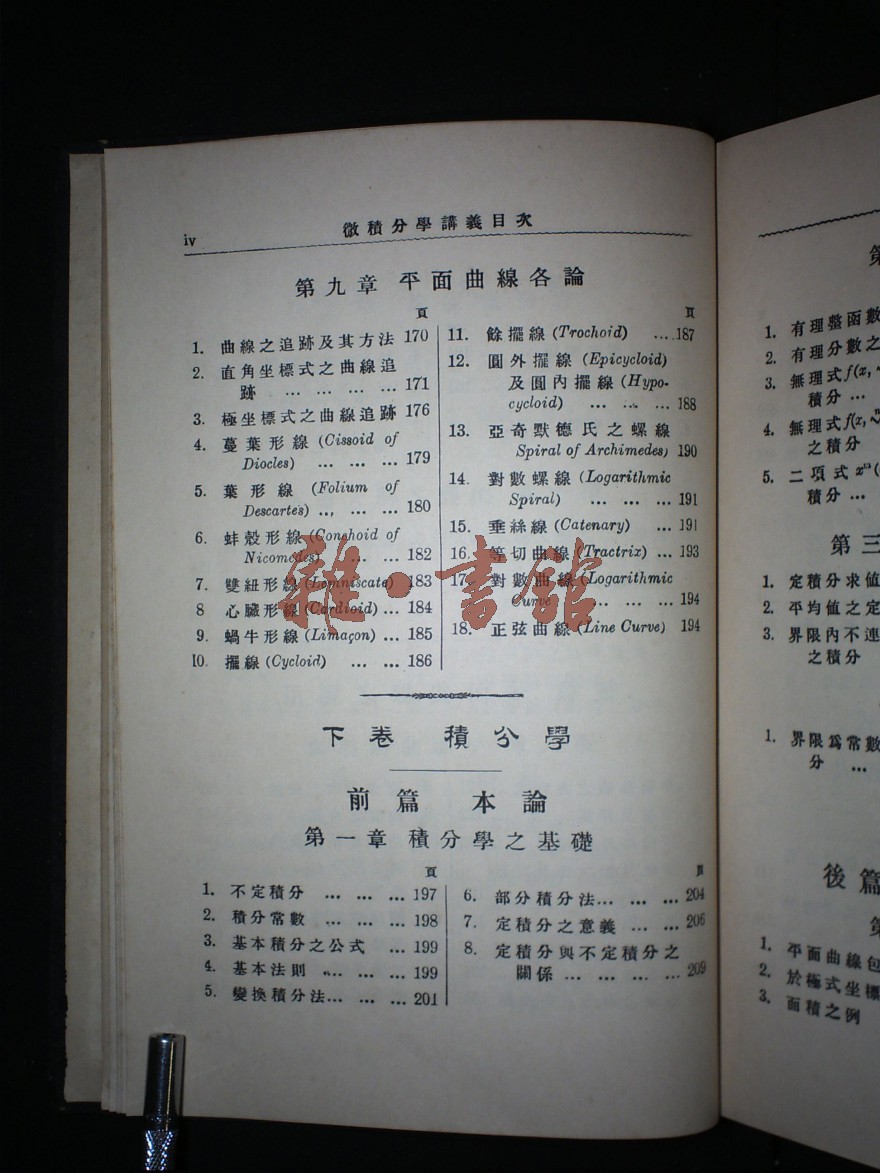 iv
微積分學講義目次
第九章 平面曲線各論
頁
1. 曲線之追跡及其方法 170
2. 直角坐標式之曲線追
跡 ... ... ... ... 171
3. 極坐標式之曲線追跡 176
4. 蔓葉形線 (Cissoid of
Diocles) ... ... ... 179
5. 葉形線 (Folium of
Descartes) ... ... ... 180
6. 蚌殼形線 (Conchoid of
Nicomedes) ... ... 182
7. 雙紐形線 (Lemniscate) 183
8 心臟形線 (Cardioid) ... 184
9. 蝸牛形線 (Limaçon) ... 185
10. 擺線 (Cycloid) ... ... 186
頁
11. 餘擺線 (Trochoid) ....187
12. 圓外擺線 (Epicycloid)
及圓內擺線 (Hypo-
cycloid) ... ... ... 188
13. 亞奇默德氏之螺線
Spiral of Archimedes) 190
14. 對數螺線 (Logarithmic
Spiral) ... ... ... 191
15. 垂絲線 (Catenary) ... 191
16. 等切曲線 (Tractrix) ... 193
17. 對數曲線 (Logarithmic
Curve) ... ... ... 194
18. 正弦曲線 (Line Curve) 194
雜·書館
下卷 積分學
前篇 本論
第一章 積分學之基礎
頁
1. 不定積分 ... ... ... 197
2. 積分常數 ... ... ... 198
3. 基本積分之公式 ... 199
4. 基本法則 ... ... ... 199
5. 變換積分法... ... ... 201
頁
6. 部分積分法... ... ... 204
7. 定積分之意義 ... ... 206
8. 定積分與不定積分之
關係 ... ... ... ... 209
第
1. 有理整函數
2. 有理分數之
3. 無理式 f(x,
積分 ...
4. 無理式 f(x,
之積分
5. 二項式
積分 ...
第三
1. 定積分求値
2. 平均値之定
3. 界限內不連
之積分
1. 界限爲常數
分 ...
後篇
第
1. 平面曲線包
2. 於極式坐標
3. 面積之例